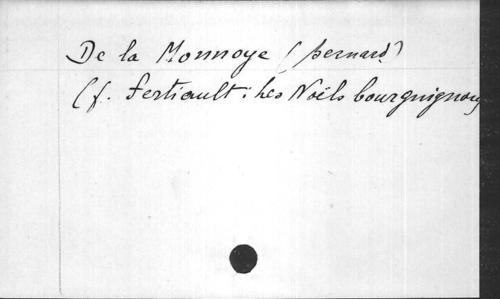 De la Monnoye (Bernard)
Cf. Fertiault : Les Noëls bourguignons